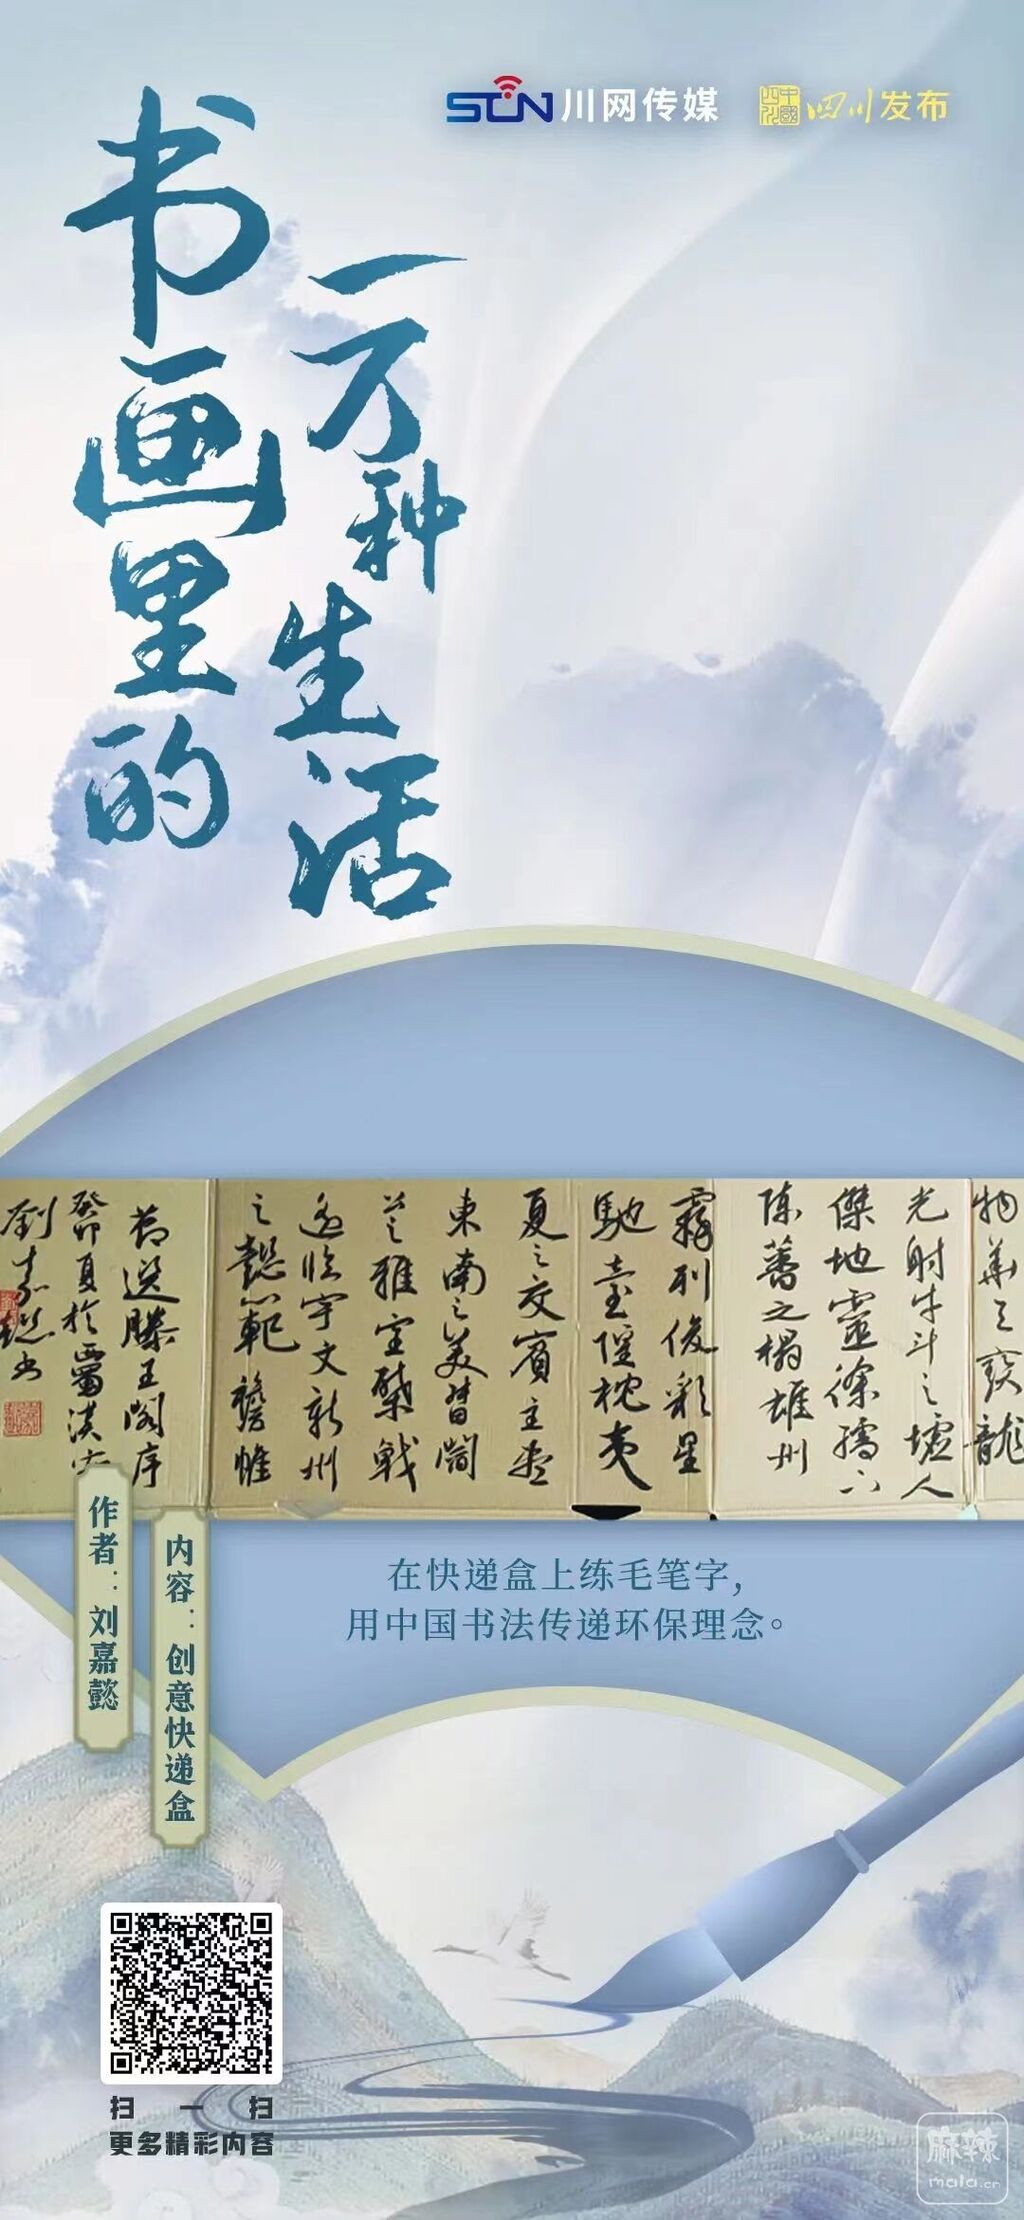 SCN 川网传媒
四川发布
书画里的
一万种生活
物華天寶龍
光射牛斗之墟人
傑地靈徐孺下
陳蕃之榻雄州
霧列俊彩星
馳臺隍枕夷
夏之交賓主盡
東南之美督閻
公之雅望棨戟
遙臨宇文新州
之懿範襜帷
節選滕王閣序
癸卯夏於蜀漢
劉嘉懿书
作者：刘嘉懿
内容：创意快递盒
在快递盒上练毛笔字，
用中国书法传递环保理念。
扫一扫
更多精彩内容
麻辣
mala.cn